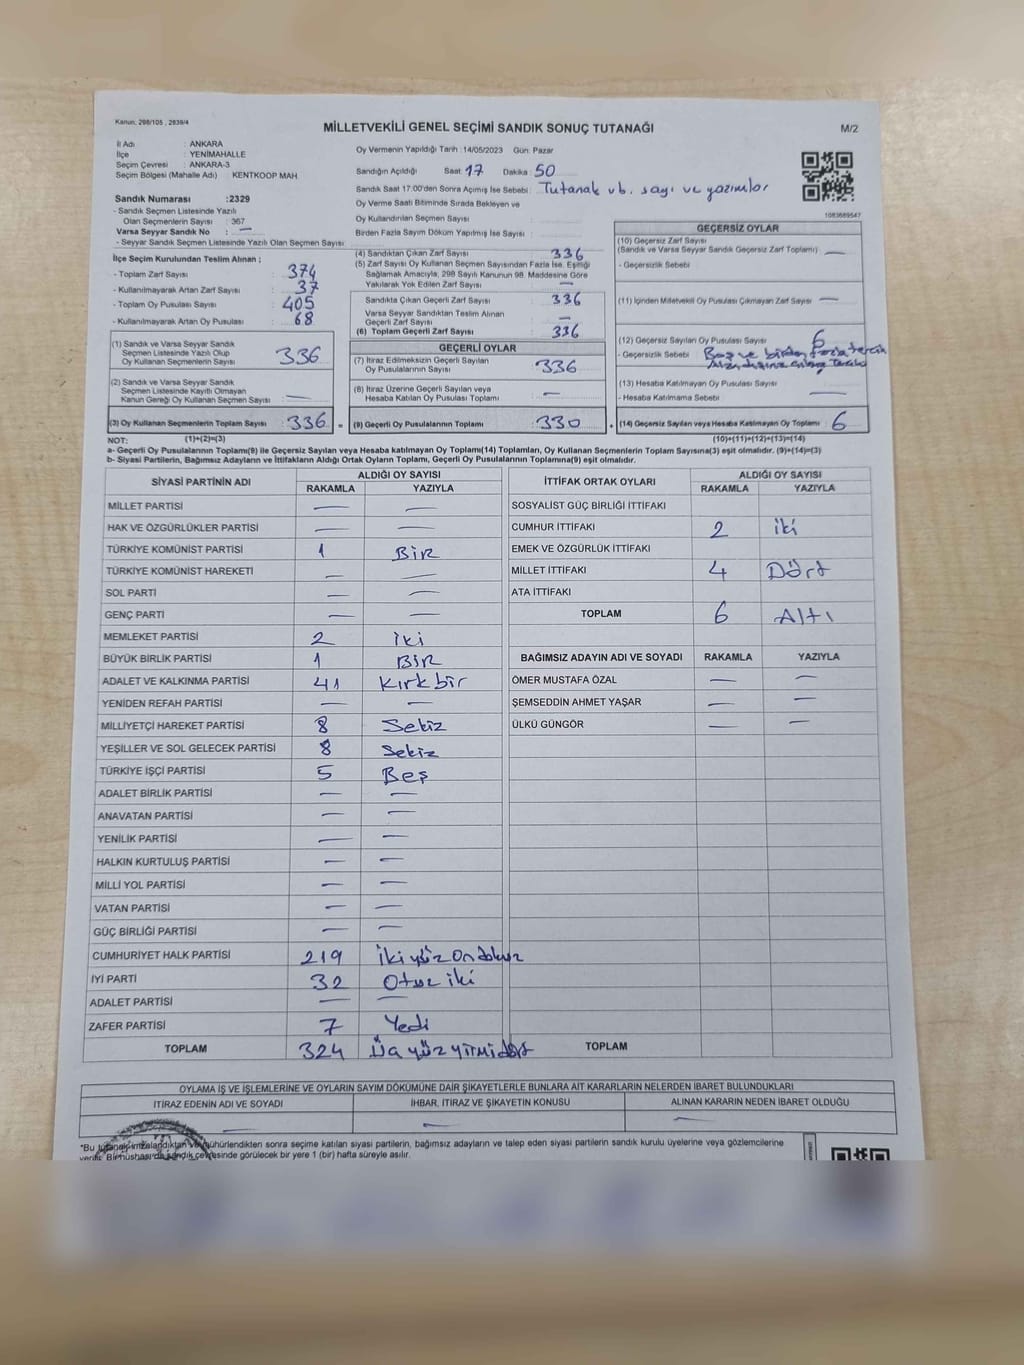 Kanun, 298/105 , 2839/4
MİLLETVEKİLİ GENEL SEÇİMİ SANDIK SONUÇ TUTANAĞI
M/2
İl Adı : ANKARA
İlçe : YENİMAHALLE
Seçim Çevresi : ANKARA-3
Seçim Bölgesi (Mahalle Adı) : KENTKOOP MAH.
Sandık Numarası :2329
- Sandık Seçmen Listesinde Yazılı
Olan Seçmenlerin Sayısı : 367
Varsa Seyyar Sandık No : —
- Seyyar Sandık Seçmen Listesinde Yazılı Olan Seçmen Sayısı:
Oy Vermenin Yapıldığı Tarih :14/05/2023 Gün: Pazar
Sandığın Açıldığı Saat 17 Dakika : 50
Sandık Saat 17.00'den Sonra Açılmış İse Sebebi : Tutanak vb. sayı ve yazımlar
Oy Verme Saati Bitiminde Sırada Bekleyen ve
Oy Kullandırılan Seçmen Sayısı :
Birden Fazla Sayım Döküm Yapılmış İse Sayısı :
1083689547
İlçe Seçim Kurulundan Teslim Alınan ;
- Toplam Zarf Sayısı : 374
- Kullanılmayarak Artan Zarf Sayısı : 37
- Toplam Oy Pusulası Sayısı : 405
- Kullanılmayarak Artan Oy Pusulası : 68
(1) Sandık ve Varsa Seyyar Sandık
Seçmen Listesinde Yazılı Olup
Oy Kullanan Seçmenlerin Sayısı : 336
(2) Sandık ve Varsa Seyyar Sandık
Seçmen Listesinde Kayıtlı Olmayan
Kanun Gereği Oy Kullanan Seçmen Sayısı : —
(3) Oy Kullanan Seçmenlerin Toplam Sayısı : 336 =
(4) Sandıktan Çıkan Zarf Sayısı : 336
(5) Zarf Sayısı Oy Kullanan Seçmen Sayısından Fazla İse, Eşitliği
Sağlamak Amacıyla, 298 Sayılı Kanunun 98. Maddesine Göre
Yakılarak Yok Edilen Zarf Sayısı : —
Sandıkta Çıkan Geçerli Zarf Sayısı : 336
Varsa Seyyar Sandıktan Teslim Alınan
Geçerli Zarf Sayısı : —
(6) Toplam Geçerli Zarf Sayısı : 336
GEÇERLİ OYLAR
(7) İtiraz Edilmeksizin Geçerli Sayılan
Oy Pusulasının Sayısı : 336
(8) İtiraz Üzerine Geçerli Sayılan veya
Hesaba Katılan Oy Pusulası Toplamı : —
(9) Geçerli Oy Pusulalarının Toplamı : 330 +
GEÇERSİZ OYLAR
(10) Geçersiz Zarf Sayısı
(Sandık ve Varsa Seyyar Sandık Geçersiz Zarf Toplamı) : —
- Geçersizlik Sebebi :
(11) İçinden Milletvekili Oy Pusulası Çıkmayan Zarf Sayısı : —
(12) Geçersiz Sayılan Oy Pusulası Sayısı : 6
- Geçersizlik Sebebi : Boş ve birden fazla tercih
(13) Hesaba Katılmayan Oy Pusulası Sayısı :
- Hesaba Katılmama Sebebi : —
(14) Geçersiz Sayılan veya Hesaba Katılmayan Oy Toplamı : 6
NOT: (1)+(2)=(3) (10)+(11)+(12)+(13)=(14)
a- Geçerli Oy Pusulalarının Toplamı(9) ile Geçersiz Sayılan veya Hesaba katılmayan Oy Toplamı(14) Toplamları, Oy Kullanan Seçmenlerin Toplam Sayısına(3) eşit olmalıdır. (9)+(14)=(3)
b- Siyasi Partilerin, Bağımsız Adayların ve İttifakların Aldığı Ortak Oyların Toplamı, Geçerli Oy Pusulalarının Toplamına(9) eşit olmalıdır.
SİYASİ PARTİNİN ADI ALDIĞI OY SAYISI
RAKAMLA YAZIYLA
MİLLET PARTİSİ — —
HAK VE ÖZGÜRLÜKLER PARTİSİ — —
TÜRKİYE KOMÜNİST PARTİSİ 1 Bir
TÜRKİYE KOMÜNİST HAREKETİ — —
SOL PARTİ — —
GENÇ PARTİ — —
MEMLEKET PARTİSİ 2 iki
BÜYÜK BİRLİK PARTİSİ 1 Bir
ADALET VE KALKINMA PARTİSİ 41 Kırkbir
YENİDEN REFAH PARTİSİ — —
MİLLİYETÇİ HAREKET PARTİSİ 8 Sekiz
YEŞİLLER VE SOL GELECEK PARTİSİ 8 Sekiz
TÜRKİYE İŞÇİ PARTİSİ 5 Beş
ADALET BİRLİK PARTİSİ — —
ANAVATAN PARTİSİ — —
YENİLİK PARTİSİ — —
HALKIN KURTULUŞ PARTİSİ — —
MİLLİ YOL PARTİSİ — —
VATAN PARTİSİ — —
GÜÇ BİRLİĞİ PARTİSİ — —
CUMHURİYET HALK PARTİSİ 219 ikiyüz On dokuz
İYİ PARTİ 32 Otuz iki
ADALET PARTİSİ — —
ZAFER PARTİSİ 7 Yedi
TOPLAM 324 Üç yüz yirmi dört
İTTİFAK ORTAK OYLARI ALDIĞI OY SAYISI
RAKAMLA YAZIYLA
SOSYALİST GÜÇ BİRLİĞİ İTTİFAKI
CUMHUR İTTİFAKI 2 iki
EMEK VE ÖZGÜRLÜK İTTİFAKI
MİLLET İTTİFAKI 4 Dört
ATA İTTİFAKI
TOPLAM 6 Altı
BAĞIMSIZ ADAYIN ADI VE SOYADI RAKAMLA YAZIYLA
ÖMER MUSTAFA ÖZAL — —
ŞEMSEDDİN AHMET YAŞAR — —
ÜLKÜ GÜNGÖR — —
TOPLAM
OYLAMA İŞ VE İŞLEMLERİNE VE OYLARIN SAYIM DÖKÜMÜNE DAİR ŞİKAYETLERLE BUNLARA AİT KARARLARIN NELERDEN İBARET BULUNDUKLARI
İTİRAZ EDENİN ADI VE SOYADI İHBAR, İTİRAZ VE ŞİKAYETİN KONUSU ALINAN KARARIN NEDEN İBARET OLDUĞU
— — —
*Bu tutanak imzalandıktan ve mühürlendikten sonra seçime katılan siyasi partilerin, bağımsız adayların ve talep eden siyasi partilerin sandık kurulu üyelerine veya gözlemcilerine
verilir. Bir nüshası da sandık çevresinde görülecek bir yere 1 (bir) hafta süreyle asılır.